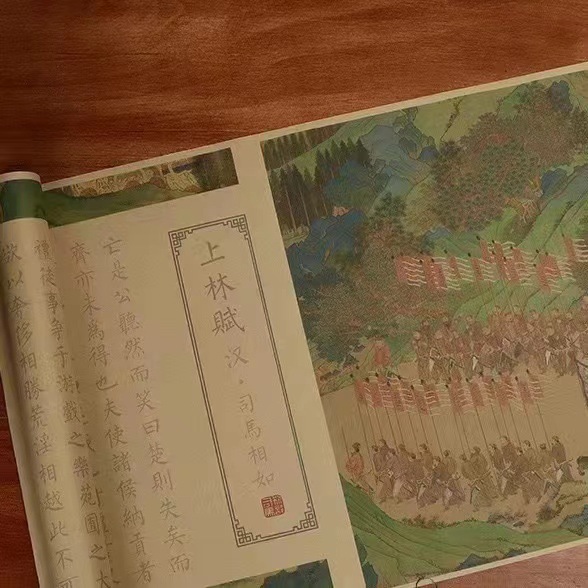 上林賦 汉·司馬相如
亡是公聽然而笑曰楚則失矣而
齊亦未為得也夫使諸侯納貢者
禮徒事爭于游戲之樂苑囿之大
欲以奢侈相勝荒淫相越此不可